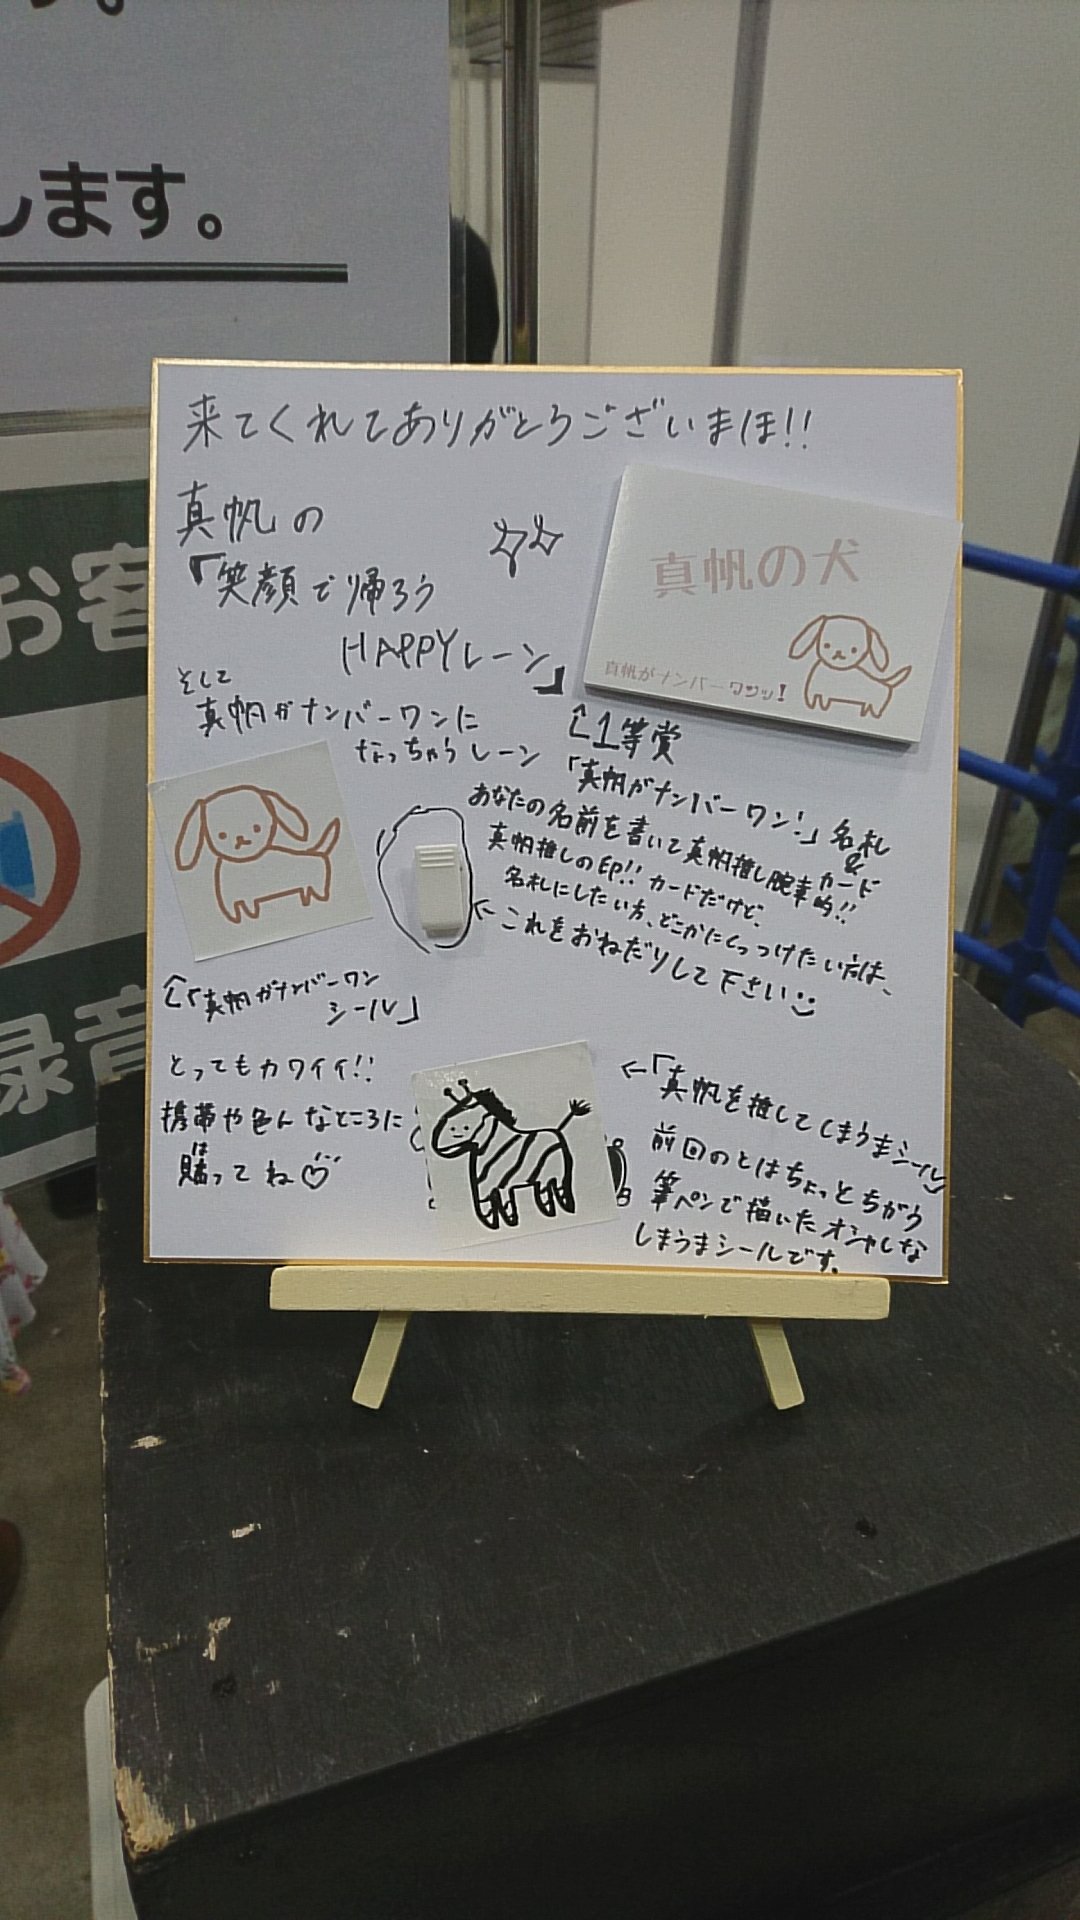 します。
お客
録音
来てくれてありがとうございまほ!!
真帆の
「笑顔で帰ろう
HAPPYレーン」
そして
真帆がナンバーワンに
なっちゃうレーン
真帆の犬
真帆がナンバーワンッ!
↑1等賞
「真帆がナンバーワン!」名札
&
カード
あなたの名前を書いて真帆推し確実的!!
真帆推しの印!! カードだけど、
名札にしたい方、どこかにくっつけたい方は、
←これをおねだりして下さい
↑「真帆がナンバーワン
シール」
とってもカワイイ!!
携帯や色んなところに
は
貼ってね♡
←「真帆を推してしまうまシール」
前回のとはちょっとちがう
筆ペンで描いたオシャレな
しまうまシールです。